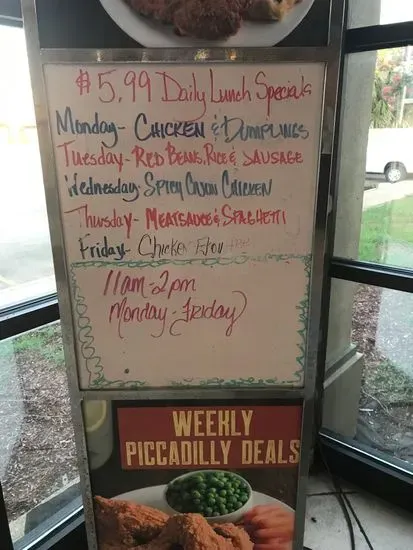 $5.99 Daily Lunch Specials
Monday- CHICKEN & DUMPLINGS
Tuesday- RED BEANS, RICE & SAUSAGE
Wednesday- SPICY CAJUN CHICKEN
Thursday- MEATSAUCE & SPAGHETTI
Friday- Chicken
11am-2pm
Monday-Friday
WEEKLY
PICCADILLY DEALS